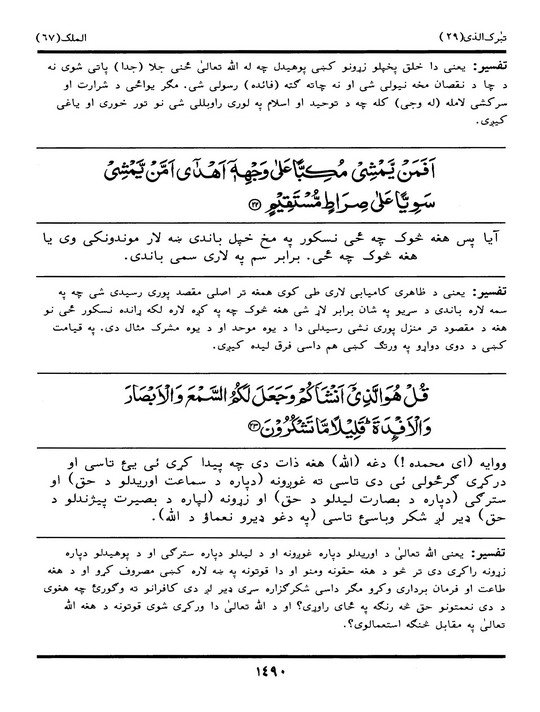 تبٰرک الذی (۲۹) الملک (۶۷)
تفسیر: یعنی دا خلق پخپلو زړونو کښی پوهیدل چه له الله تعالیٰ ځنی جلا (جدا) پاتی شوی نه
د چا د نقصان مخه نیولی شی او نه چاته ګټه (فائده) رسولی شی. مګر یواځی د شرارت او
سرکشی لامله (له وجی) کله چه د توحید او اسلام په لوری راوبللی شی نو تور خوری او یاغی
کیږی.
اَفَمَنْ يَّمْشِيْ مُكِبًّا عَلٰى وَجْهِهٖۤ اَهْدٰۤى اَمَّنْ يَّمْشِيْ
سَوِيًّا عَلٰى صِرَاطٍ مُّسْتَقِيْمٍ ﴿۲۲﴾
آیا پس هغه څوک چه ځی نسکور په مخ خپل باندی ښه لار موندونکی وی یا
هغه څوک چه ځی. برابر سم په لاری سمی باندی.
تفسیر: یعنی د ظاهری کامیابی لاری طی کوی همغه تر اصلی مقصد پوری رسیدی شی چه په
سمه لاره باندی د سړیو په شان برابر لاړ شی هغه څوک چه په کږه لاره لکه ړانده نسکور ځی نو
هغه د مقصود تر منزل پوری نشی رسیدلی دا د یوه موحد او د یوه مشرک مثال دی. په قیامت
کښی د دوی دواړو په ورتګ کښی هم داسی فرق لیده کیږی.
قُلْ هُوَ الَّذِيْۤ اَنْشَاَكُمْ وَجَعَلَ لَكُمُ السَّمْعَ وَالْاَبْصَارَ
وَالْاَفْـِٕدَةَ ؕ قَلِيْلًا مَّا تَشْكُرُوْنَ ﴿۲۳﴾
ووایه (ای محمده !) دغه (الله) هغه ذات دی چه پیدا کړی ئی یئ تاسی او
درکړی ګرځولی ئی دی تاسی ته غوږونه (دپاره د سماعت اوریدلو د حق) او
سترګی (دپاره د بصارت لیدلو د حق) او زړونه (لپاره د بصیرت پیژندلو د
حق) ډیر لږ شکر وباسئ تاسی (په دغو ډیرو نعماؤ د الله).
تفسیر: یعنی الله تعالیٰ د اوریدلو دپاره غوږونه او د لیدلو دپاره سترګی او د پوهیدلو دپاره
زړونه راکړی دی تر څو د هغه حقونه ومنو او دا قوتونه په ښه لاره کښی مصروف کړو او د هغه
طاعت او فرمان برداری وکړو مګر داسی شکرګزاره سړی ډیر لږ دی کافرانو ته وګورئ چه هغوی
د دی نعمتونو حق څه رنګه په ځای راوړی؟ او د الله تعالیٰ دا ورکړی شوی قوتونه د هغه الله
تعالیٰ په مقابل څنګه استعمالوی؟.
۱۴۹۰